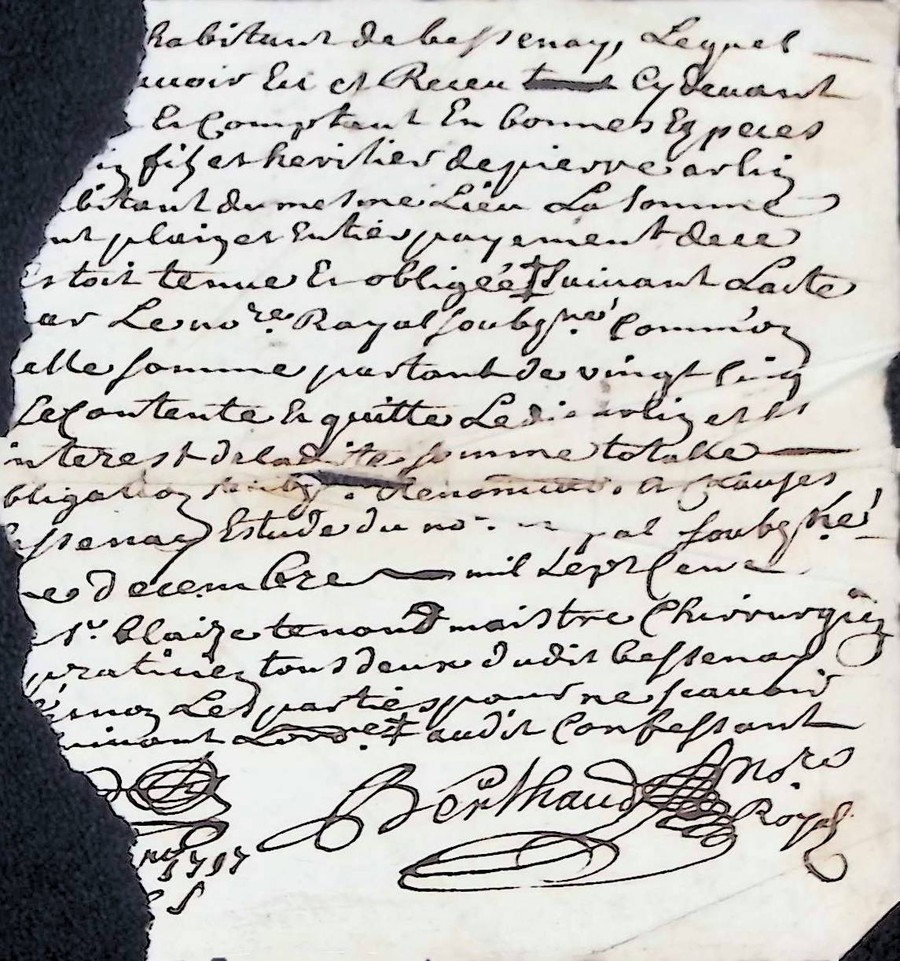 habitant de bessenay, Lequel
avoir Eu et Receu Cydevant
Et Comptant En bonnes Especes
filz et heritier de pierre arliz
bitant du mesme Lieu La somme
nt plaiz et Entier payement de ce
Estoit tenue Et obligéé ‡ suivant Lacte
ar Le nore Rayal soubzné Comm'oz
elle somme partant de vingt Cinq
Se Contente Et quitte Ledit arliz et
interest de ladite somme totalle
bligation Renoncé. Et Clauses
essenay Estude du no soubzné
e decembre mil sept Cent
sr blaize tenond maistre Chirurgiez
praticiez tous deux dudit bessenay
Les parties pour ne scavoir
suivant Lord.e ‡ audit Confessant
Berthaud nore
Royal
1717